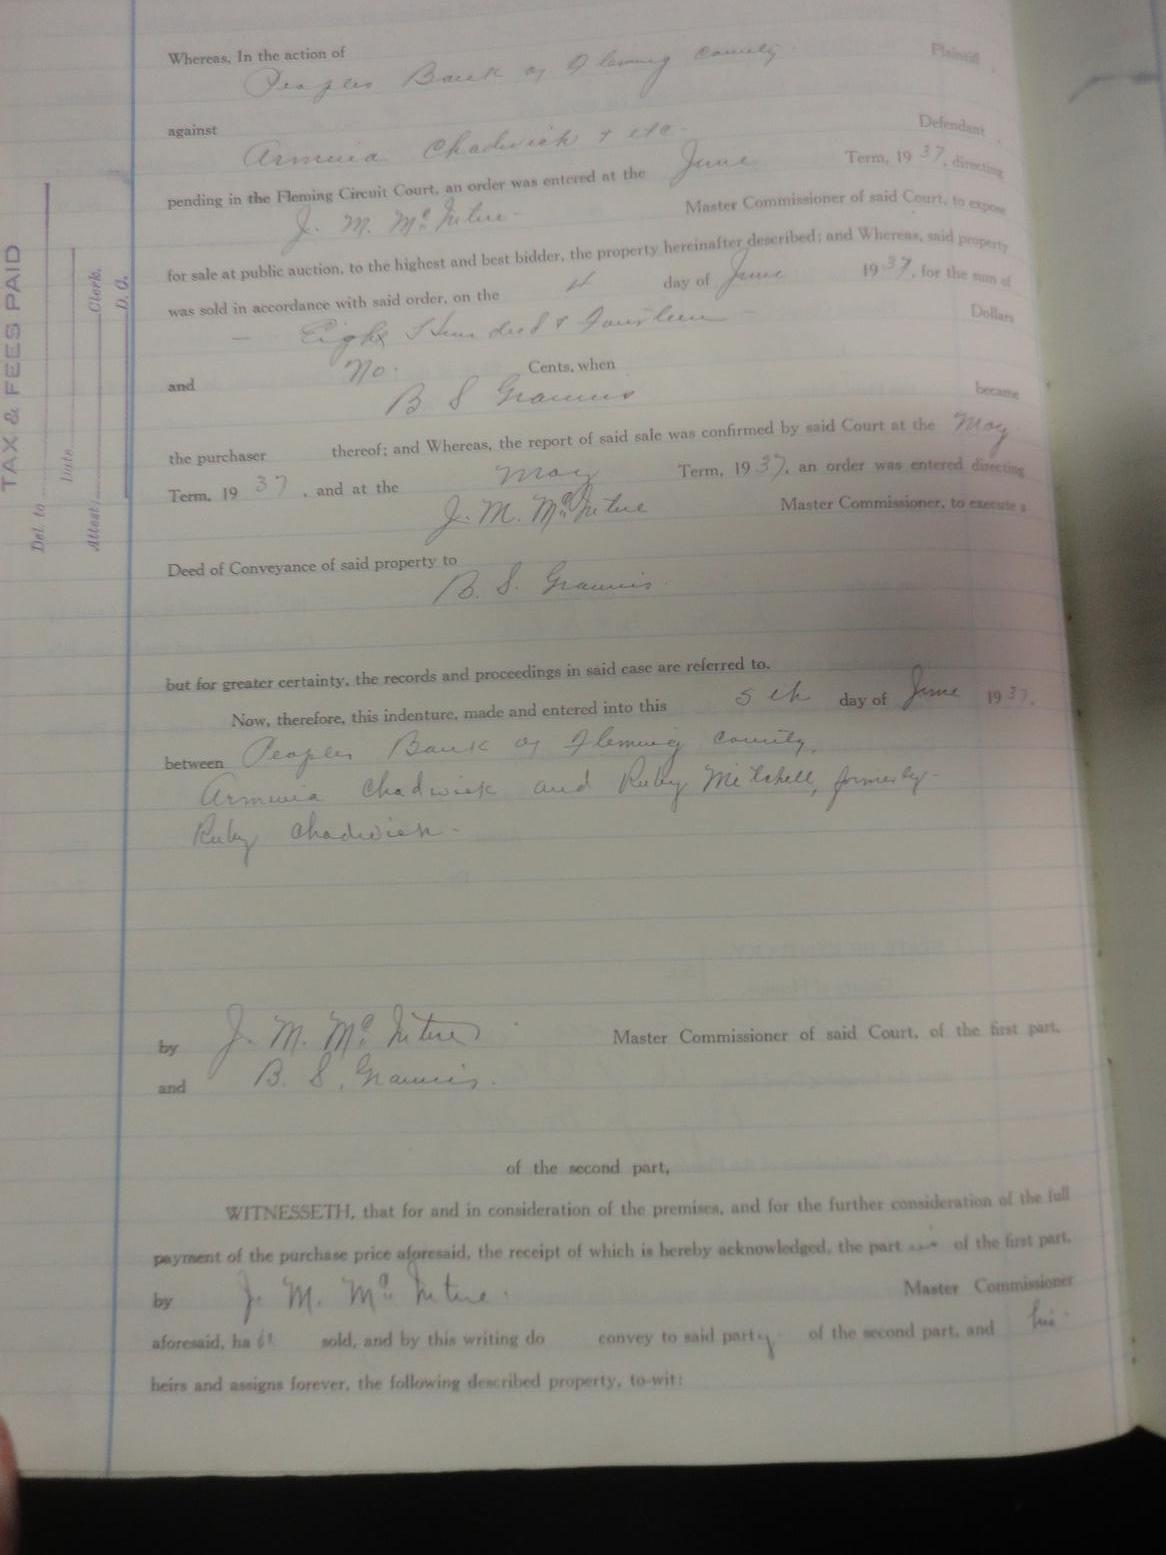 Whereas, In the action of
Peoples Bank of Fleming County Plaintiff
against
Armina Chadwick & etc. Defendant
pending in the Fleming Circuit Court, an order was entered at the June Term, 1937, directing
J. M. Master Commissioner of said Court, to expose
for sale at public auction, to the highest and best bidder, the property hereinafter described; and Whereas, said property
was sold in accordance with said order, on the day of June 1937, for the sum of
— Eight Hundred & Fourteen — Dollars
and No. Cents, when
B S Grannis became
the purchaser thereof; and Whereas, the report of said sale was confirmed by said Court at the May
Term, 1937, and at the May Term, 1937, an order was entered directing
J. M. Master Commissioner, to execute a
Deed of Conveyance of said property to
B. S. Grannis.
but for greater certainty, the records and proceedings in said case are referred to.
Now, therefore, this indenture, made and entered into this 5th day of June 1937.
between Peoples Bank of Fleming County,
Armina Chadwick and Ruby Mitchell, formerly
Ruby Chadwick.
by J. M. Master Commissioner of said Court, of the first part,
and B. S. Grannis.
of the second part,
WITNESSETH, that for and in consideration of the premises, and for the further consideration of the full
payment of the purchase price aforesaid, the receipt of which is hereby acknowledged, the part of the first part,
by J. M. Master Commissioner
aforesaid, ha sold, and by this writing do convey to said party of the second part, and his
heirs and assigns forever, the following described property, to-wit:
TAX & FEES PAID
Del. to
Date
Attest: Clerk.
D. C.